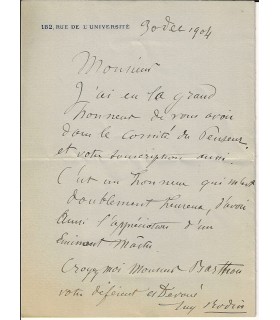 182, RUE DE L'UNIVERSITÉ
30 Dec 1904
Monsieur
J'ai eu la grand
honneur de vous avoir
dans le Comité du Penseur
et votre souscription aussi.
C'est un honneur qui
doublement heureux, d'avoir
ainsi l'appréciation d'un
Eminent Maître
Croyez moi Monsieur Barthou
votre déférent et Dévoué
Aug Rodin